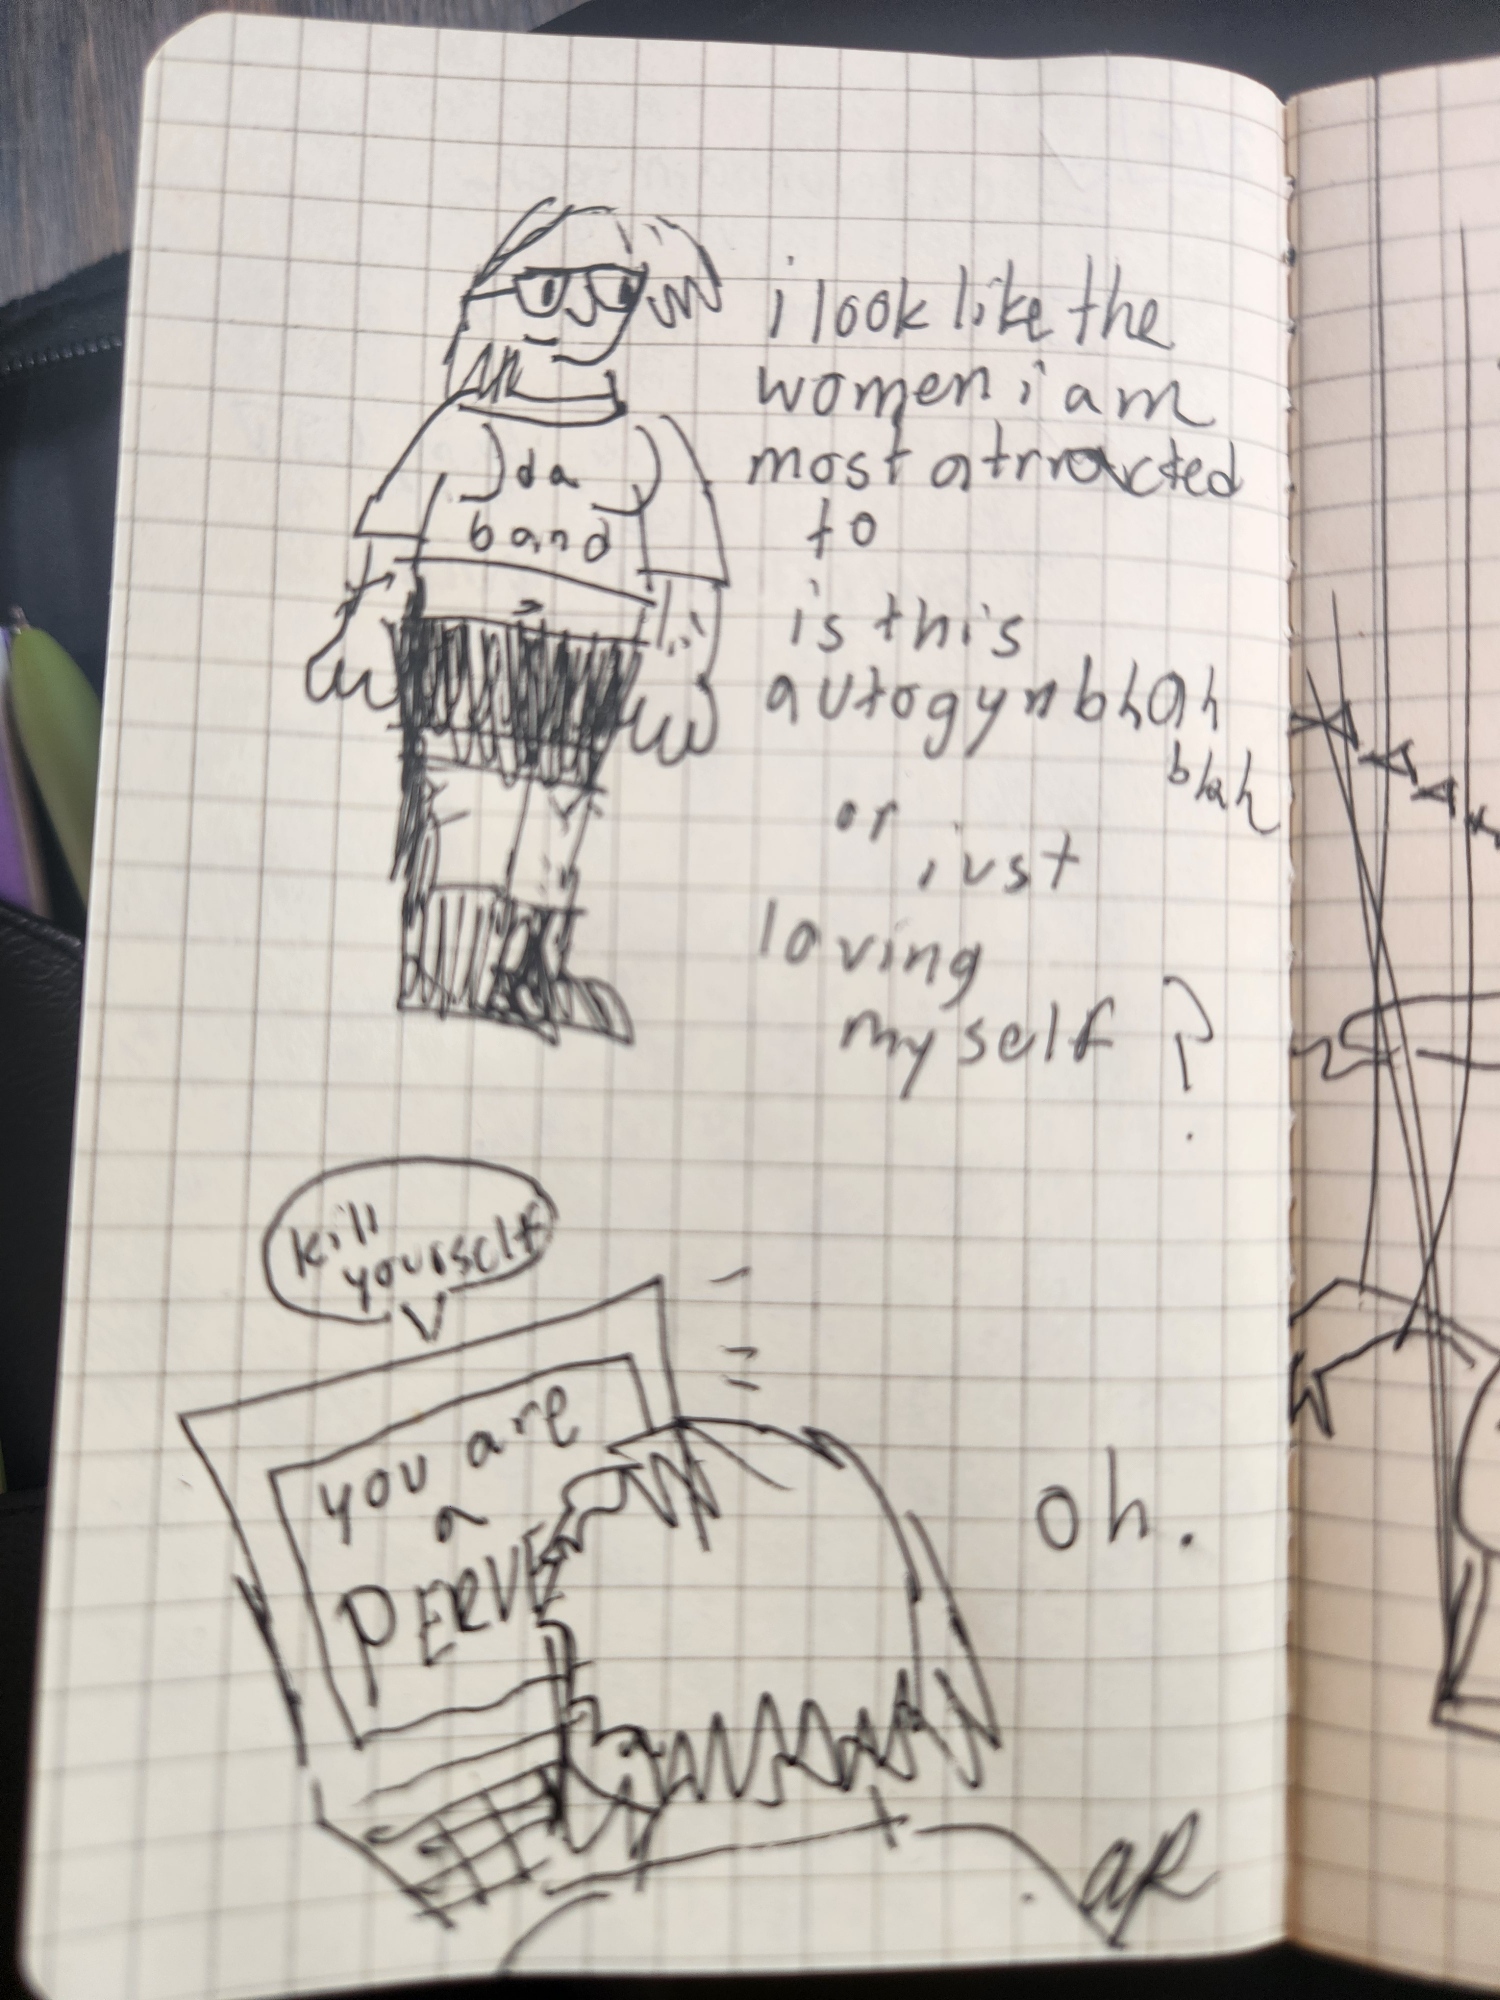 da
band
i look like the
women i am
most atrracted
to
is this
autogyn blah
blah
or just
loving
myself?
kill
yourself
you are
a
PERVE
oh.
aR